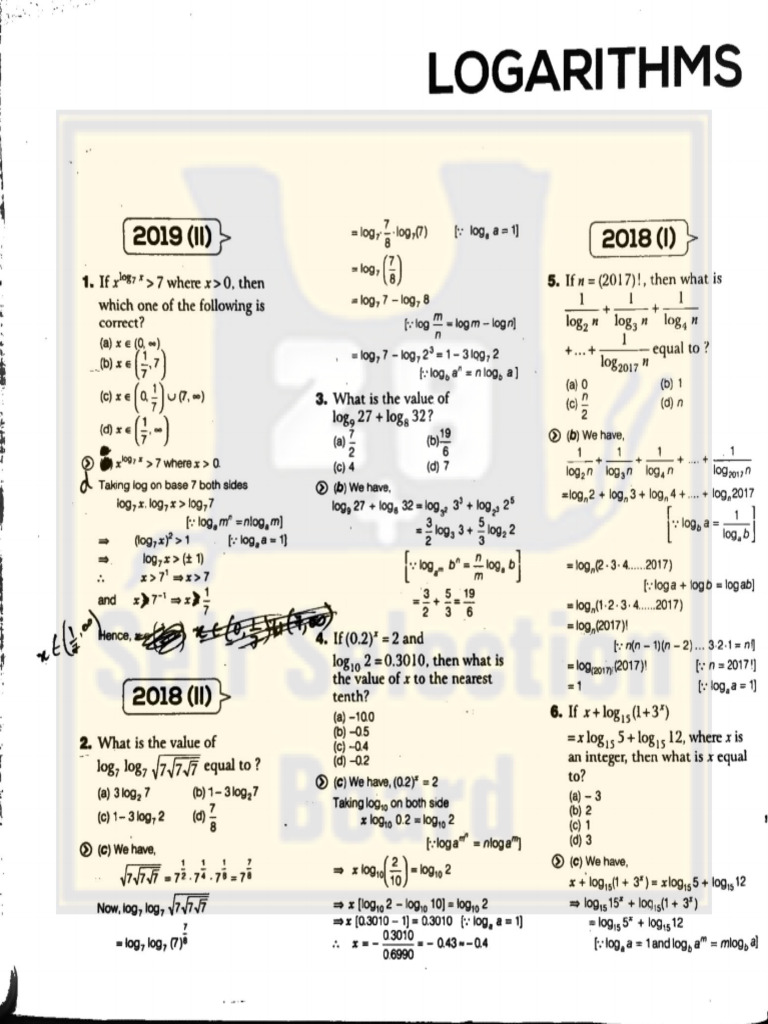 LOGARITHMS
2019 (II)
1. If x^{log₇ x} > 7 where x > 0, then
which one of the following is
correct?
(a) x ∈ (0, ∞)
(b) x ∈ (1/7, 7)
(c) x ∈ (0, 1/7) ∪ (7, ∞)
(d) x ∈ (1/7, ∞)
x^{log₇ x} > 7 where x > 0.
d
Taking log on base 7 both sides
log₇ x. log₇ x > log₇7
[∵ logₐ mⁿ = nlogₐ m]
⇒ (log₇ x)² > 1 [∵ logₐ a = 1]
⇒ log₇ x > (± 1)
∴ x > 7¹ ⇒ x > 7
and x > 7⁻¹ ⇒ x > 1/7
x ∈ (1/7, ∞)
Hence,
2018 (II)
2. What is the value of
log₇ log₇ √(7√(7√7)) equal to ?
(a) 3 log₂ 7 (b) 1 – 3 log₂ 7
(c) 1 – 3 log₇ 2 (d) 7/8
(c) We have,
√(7√(7√7)) = 7^{1/2} · 7^{1/4} · 7^{1/8} = 7^{7/8}
Now, log₇ log₇ √(7√(7√7))
= log₇ log₇ (7)^{7/8}
= log₇ 7/8 · log₇(7) [∵ logₐ a = 1]
= log₇ (7/8)
= log₇ 7 – log₇ 8
[∵ log m/n = log m – log n]
= log₇ 7 – log₇ 2³ = 1 – 3 log₇ 2
[∵ log_b aⁿ = n log_b a]
3. What is the value of
log₉ 27 + log₈ 32?
(a) 7/2 (b) 19/6
(c) 4 (d) 7
(b) We have,
log₉ 27 + log₈ 32 = log_{3²} 3³ + log_{2³} 2⁵
= 3/2 log₃ 3 + 5/3 log₂ 2
[∵ log_{a^m} bⁿ = n/m logₐ b]
= 3/2 + 5/3 = 19/6
4. If (0.2)ˣ = 2 and
log₁₀ 2 = 0.3010, then what is
the value of x to the nearest
tenth?
(a) –10.0
(b) –0.5
(c) –0.4
(d) –0.2
(c) We have, (0.2)ˣ = 2
Taking log₁₀ on both side
x log₁₀ 0.2 = log₁₀ 2
⇒ x log₁₀ (2/10) = log₁₀ 2
⇒ x [log₁₀ 2 – log₁₀ 10] = log₁₀ 2
⇒ x [0.3010 – 1] = 0.3010 [∵ logₐ a = 1]
∴ x = – 0.3010/0.6990 = – 0.43 = – 0.4
2018 (I)
5. If n = (2017)!, then what is
1/log₂ n + 1/log₃ n + 1/log₄ n
+ ... + 1/log₂₀₁₇ n equal to ?
(a) 0 (b) 1
(c) n/2 (d) n
(b) We have,
1/log₂n + 1/log₃n + 1/log₄n + .... + 1/log₂₀₁₇n
= logₙ2 + logₙ3 + logₙ4 + .... + logₙ2017
[∵ log_b a = 1/logₐ b]
= logₙ(2 · 3 · 4......2017)
[∵ log a + log b = log ab]
= logₙ(1 · 2 · 3 · 4......2017)
= logₙ(2017)!
[∵ n(n – 1)(n – 2) ... 3·2·1 = n!]
= log₍₂₀₁₇₎!(2017)! [∵ n = 2017!]
= 1 [∵ logₐ a = 1]
6. If x + log₁₅(1 + 3ˣ)
= x log₁₅ 5 + log₁₅ 12, where x is
an integer, then what is x equal
to?
(a) – 3
(b) 2
(c) 1
(d) 3
(c) We have,
x + log₁₅(1 + 3ˣ) = x log₁₅ 5 + log₁₅ 12
⇒ log₁₅ 15ˣ + log₁₅(1 + 3ˣ)
= log₁₅ 5ˣ + log₁₅ 12
[∵ logₐ a = 1 and log_b aᵐ = m log_b a]
Self Selection
Board